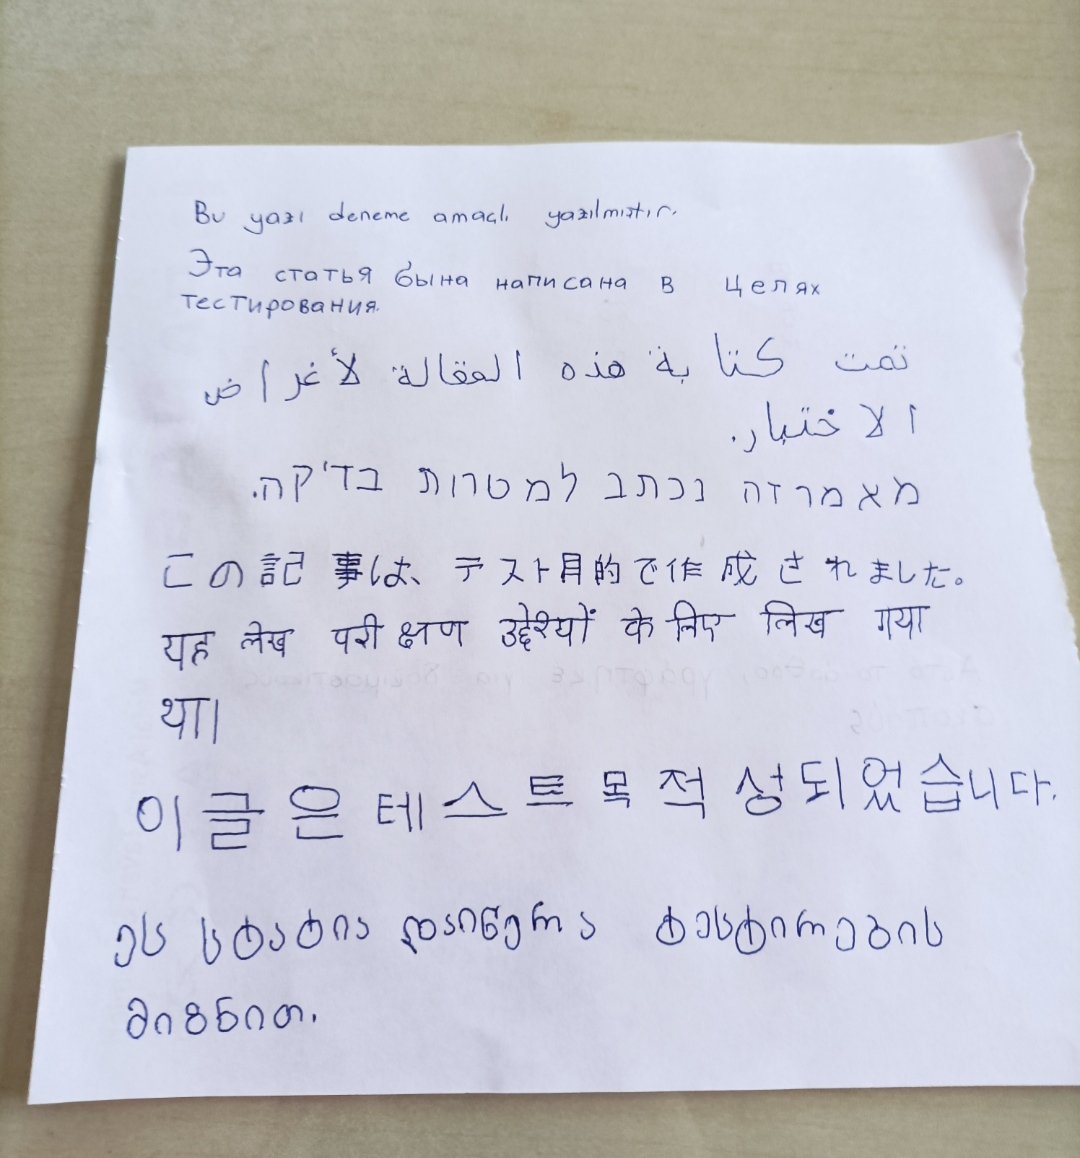 Bu yazı deneme amaçlı yazılmıştır.
Эта статья была написана в целях
тестирования.
تمت كتابة هذه المقالة لأغراض
الاختبار.
מאמר זה נכתב למטרות בדיקה.
この記事は、テスト目的で作成されました。
यह लेख परीक्षण उद्देश्यों के लिए लिखा गया
था।
이 글은 테스트 목적 성되었습니다.
ეს სტატია დაიწერა ტესტირების
მიზნით.